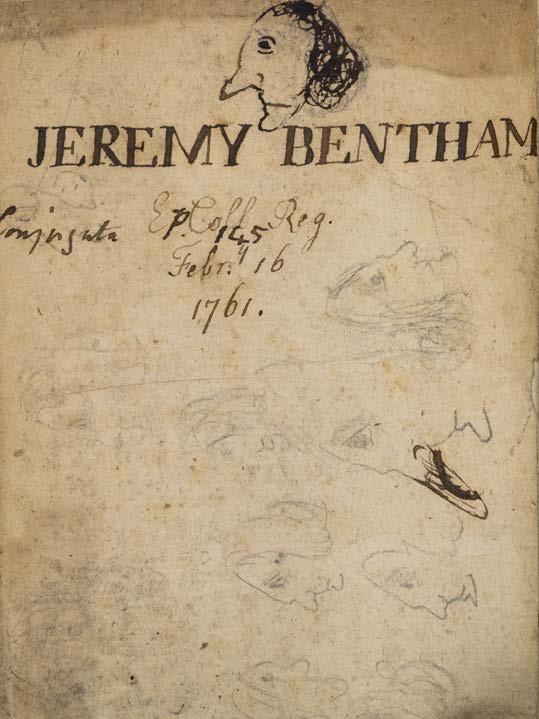 JEREMY BENTHAM
E Coll. Reg.
Conjugata P. 145
Febr.y 16
1761.